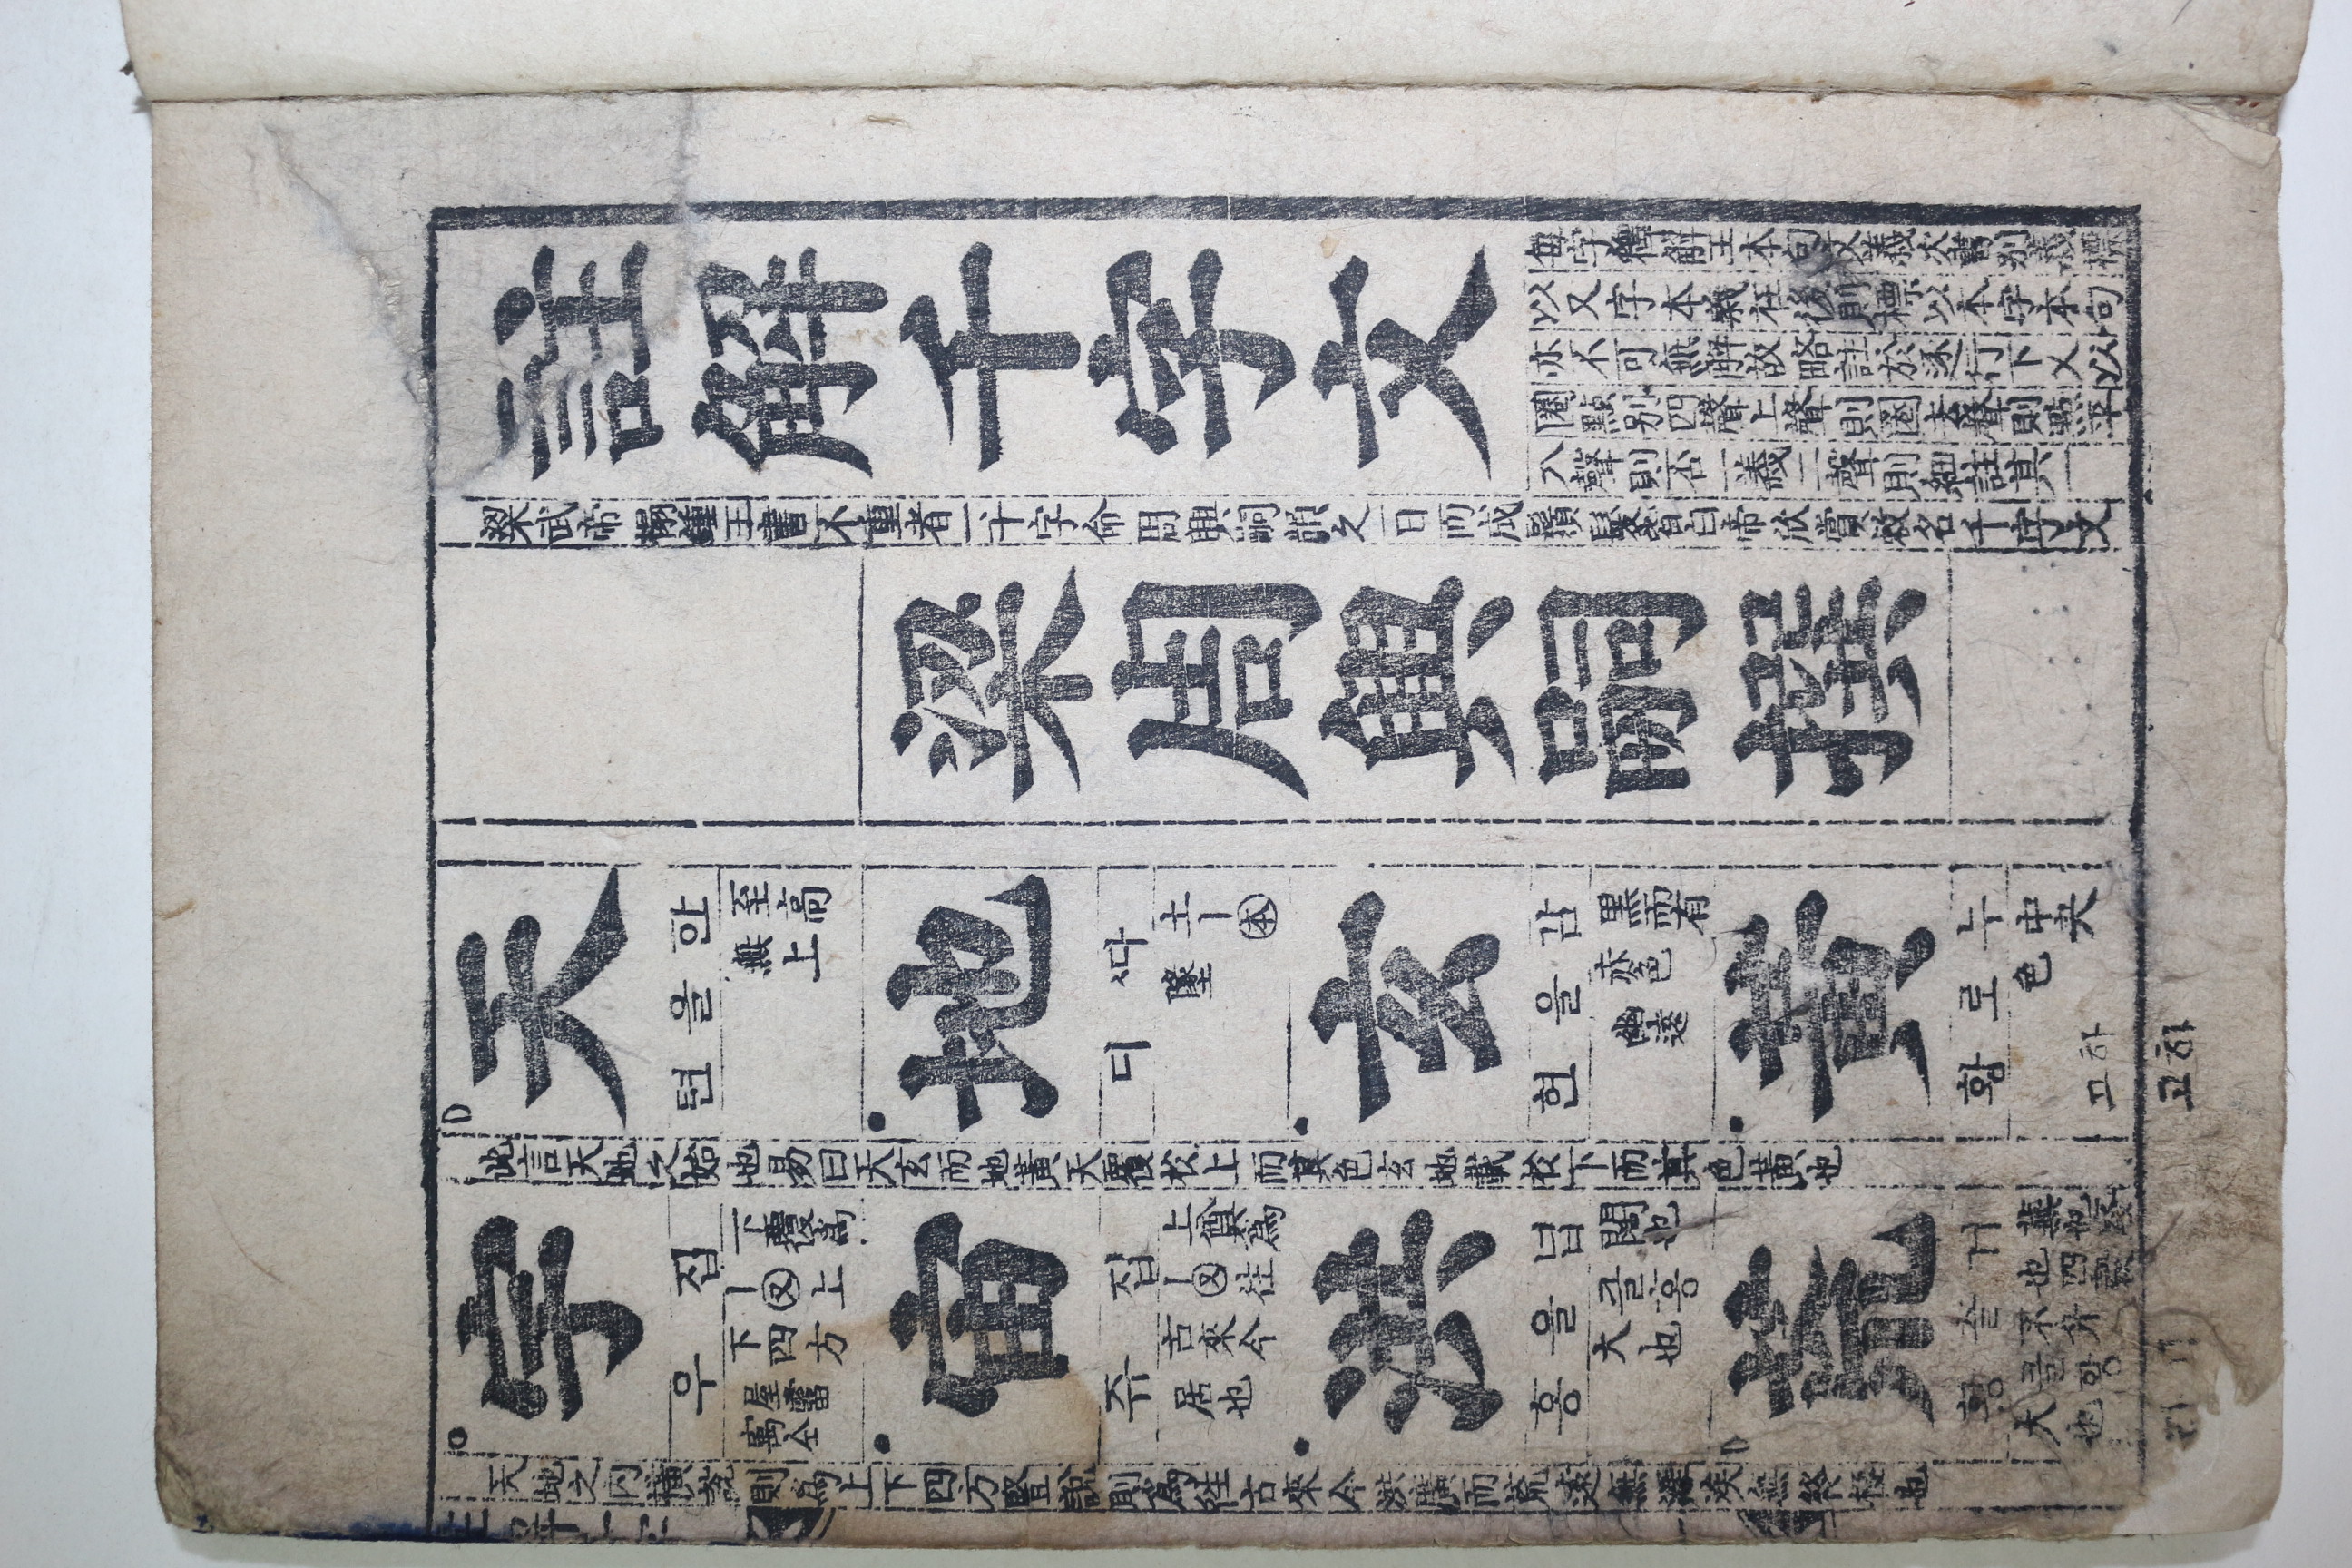 註解千字文
每字釋解主本句文義次書別義標
以又字本義在後則標以本字本句
亦不可無解故略註於逐行下又以
圈點別四聲上聲則圈去聲則點平
入聲則否一義二聲則細註其一
梁武帝榻鍾王書不重者一千字命周興嗣韻之一日而成鬚髮皆白帝欣賞敕名千字文
梁周興嗣撰
天
한을텬
至高
無上
地
ᄯᅡ디
土丨本
墜
玄
감을현
黑而有
赤色
幽遠
黃
누로황
中央
色
하고
하고
此言天地之始也易曰天玄而地黃天覆於上而其色玄地載於下而其色黃也
宇
집우
下覆爲
丨又上
下四方
屋霤
寓仝
宙
집쥬
上奠爲
丨又往
古來今
居也
洪
넙을홍
闊也
클홍
大也
荒
거츨황
蕪也
也四
不升
클황
大也
天地之內橫說則爲上下四方豎說則爲往古來今洪廣而荒遠無涯涘無終極也